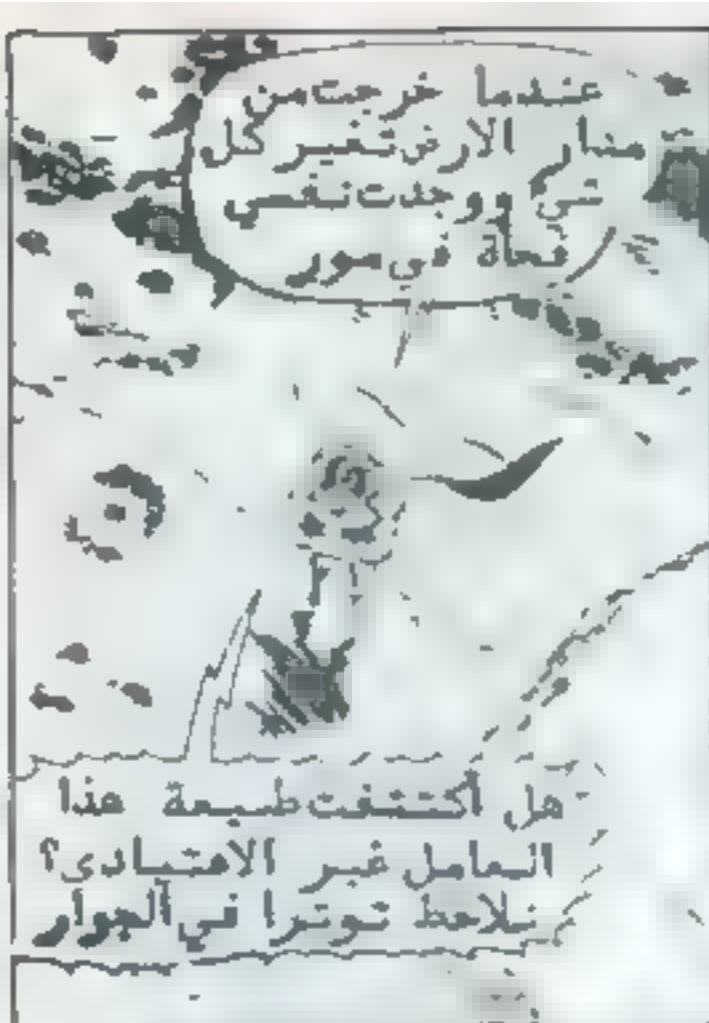 عندما خرجت من
مدار الارض تغير كل
شيء ووجدت نفسي
فجأة في مدور
هل أكتشفت طبيعة هذا
العامل غير الاعتيادى؟
نلاحظ توترا في الجوار